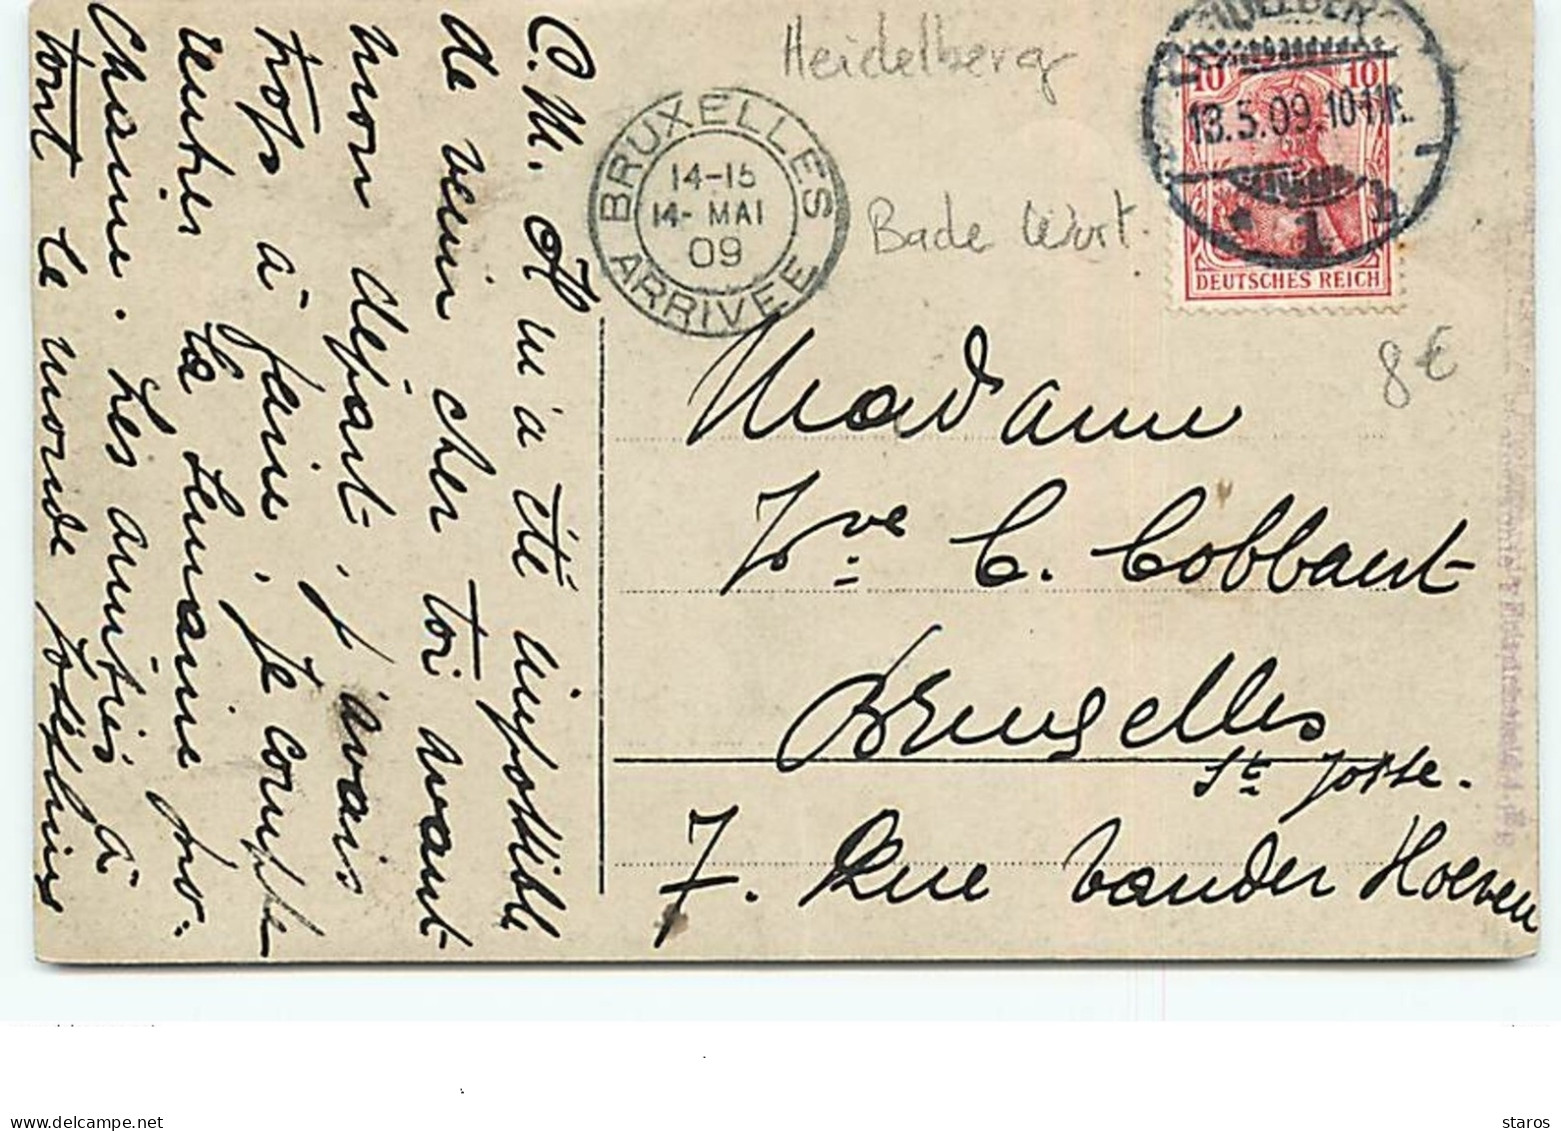 C. M. Il m'a été impossible
de venir cher toi avant
mon départ. j'avais
trop à faire. Je compte
rentrer la semaine pro-
chaine. Les amitiés à
tout le monde Joséphine
Heidelberg
Bade Wurt.
BRUXELLES
14-15
14- MAI
09
ARRIVEE
HEIDELBERG
10 10
13.5.09.10-11N.
* 1 h
DEUTSCHES REICH
8€
Madame
Vve C. Cobbaert
Bruxelles
St Josse.
7. Rue Vander Hoeven
www.delcampe.net
staros